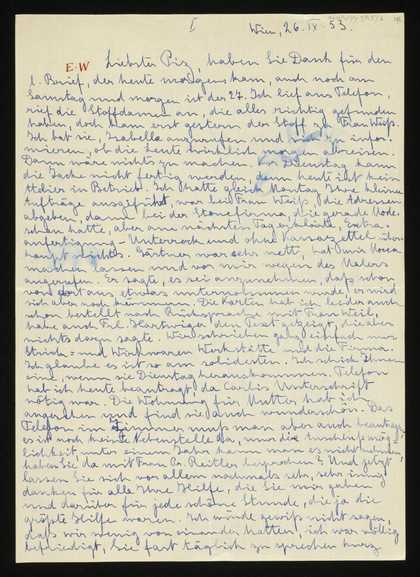 I
Wien, 26.IX.53.
E·W
Liebster Piz, haben Sie Dank für den
l. Brief, der heute morgens kam, auch noch am
Samstag und morgen ist der 27. Ich lief ans Telefon,
rief die Stoffdamen an, die alles richtig gefunden
haben, doch kam erst gestern der Stoff zu Frau Weiß.
Ich bat sie, Isabella anzurufen und zu infor-
mieren, ob die Leute nämlich morgen abreisen.
Dann wäre nichts zu machen. Dienstag kann
die Sache nicht fertig werden, denn heute ist kein
Atelier in Betrieb. Ich hatte gleich Montag Ihre kleinen
Aufträge ausgeführt, war bei Frau Weiß, die Adressen
abgeben, dann bei der Storefirma, die gerade Mode-
schau hatte, aber am nächsten Tag erklärte, Extra-
anfertigung - Unterrock und ohne Vorsatzettel über-
haupt nicht. Gärtner war sehr nett, hat
machen lassen und vor mir wegen des Malers
angerufen. Er sagt, es sei anzunehmen, daß schon
von dort aus etwas unternommen wurde, er wird
sich aber noch kümmern. Die Karten hab ich leider auch
schon bestellt nach Rücksprache mit Frau Weiß,
habe auch Frl. Hartwiger den Text gezeigt, die aber
nichts davon sagte. Wir schrieben ganz einfach nur
Strick- und Wirkwaren Werkstätte und die Firma.
Ich glaube es ist so am solidesten. Ich schick Ihnen
eine, wenn sie Dienstag herauskommen. Telefon
hab ich heute beantragt, da Carlis Unterschrift
nötig war. Die Wohnung für Mutter hab ich
angesehen und find sie auch wunderschön. Das
Telefon im Zimmer muß man aber auch beantragen,
es ist noch keine Nebenstelle da, nur die Anschlußmög-
lichkeit, unter einem Jahr kann man es nicht nehmen,
haben Sie da mit Frau Co. Reitler besprochen? Und jetzt
lassen Sie sich vor allem nochmals sehr, sehr innig
danken für alle Ihre Hilfe, die Sie mir gaben
und darüber für jede schöne Stunde, die ja die
größte Hilfe waren. Ich würde gewiß nicht sagen,
daß wir wenig von einander hatten, ich war völlig
befriedigt, Sie fast täglich zu sprechen kurz